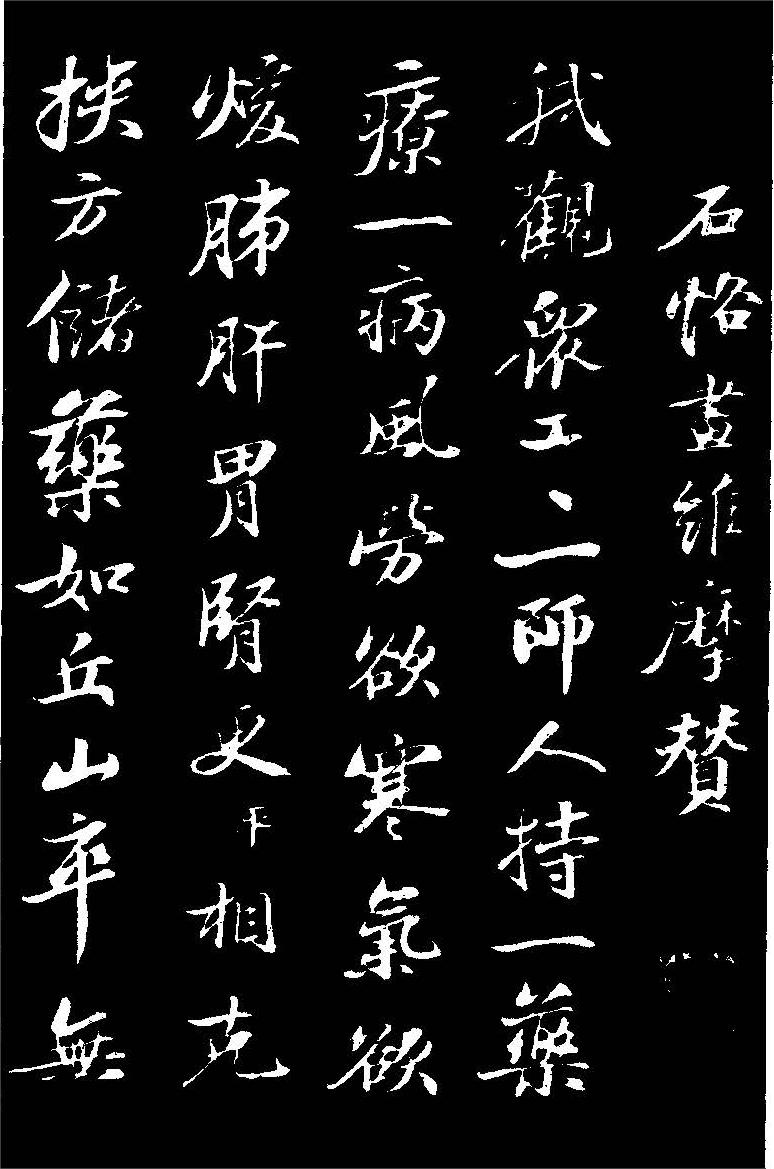 石恪畫維摩贊
我觀衆工〻一師人持一藥
療一病風勞欲寒氣欲
煖肺肝胃腎更相克
挾方儲藥如丘山卒無